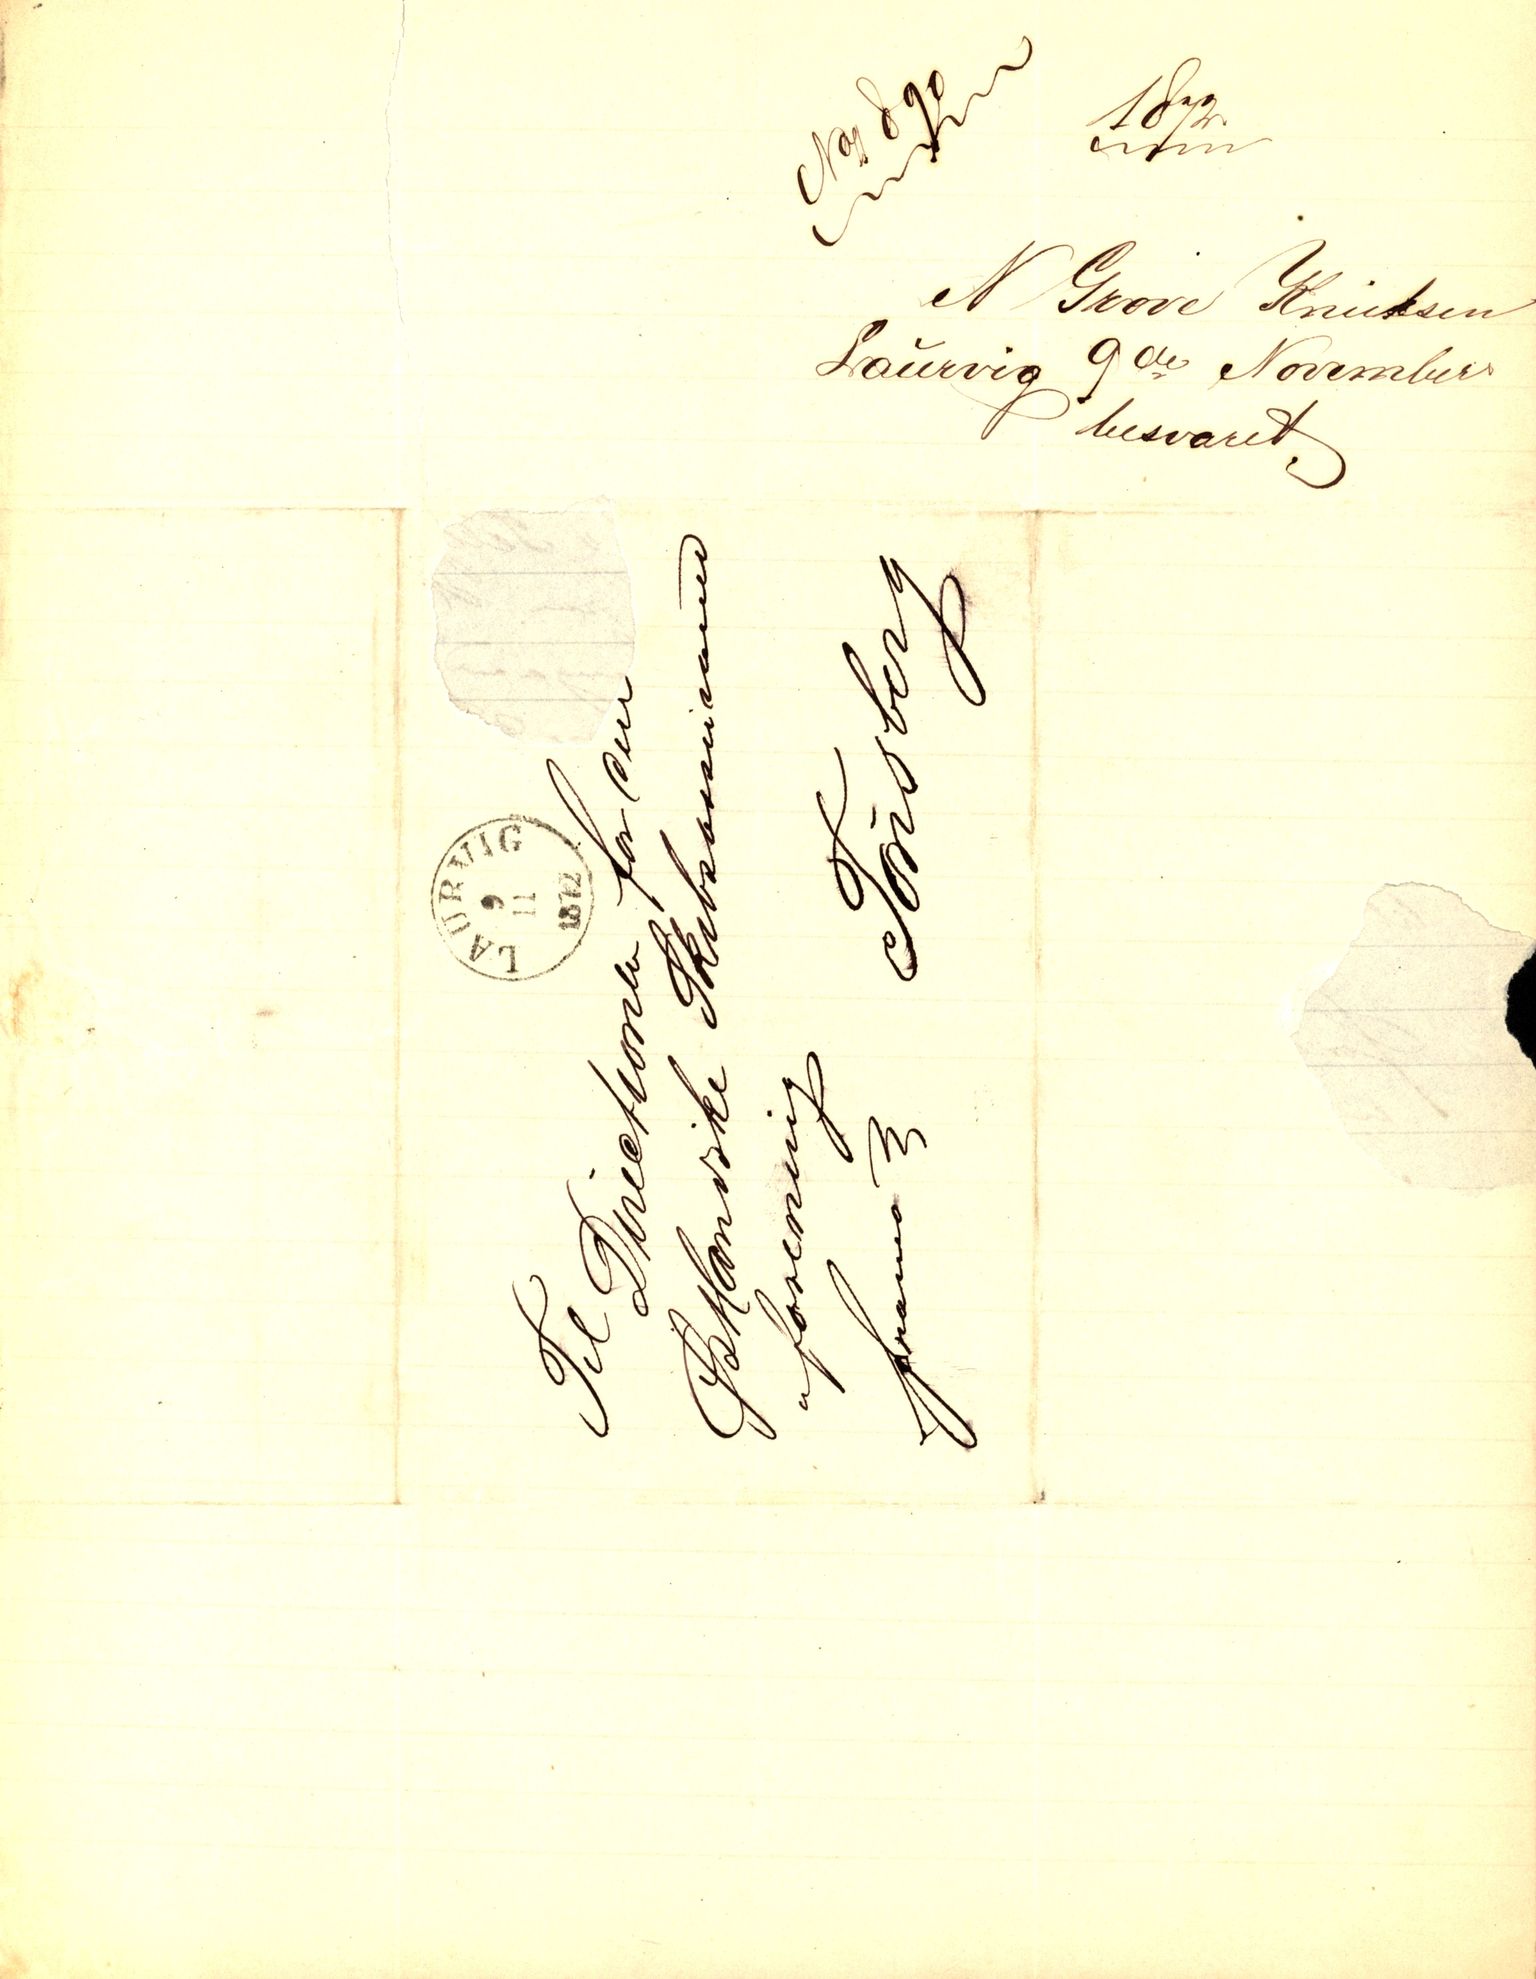 No 890
1872.
N Grove Knudsen
Laŭrvig 9de November
besvaret
LAURVIG
9
11
1872
Til Directionen for den
Østlandske Skibsassurance
forening
franco
Tönsberg